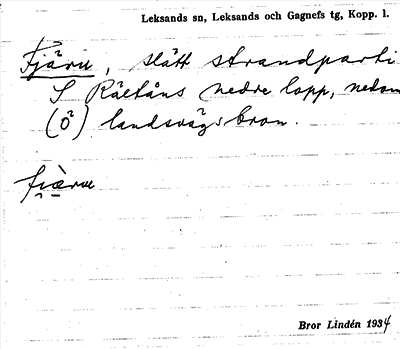 Leksands sn, Leksands och Gagnefs tg, Kopp. l.
Fjäru, slätt strandparti
S Räetåns nedre lopp, nedom
(Ö) landsvägsbron.
fiæru
Bror Lindén 1934